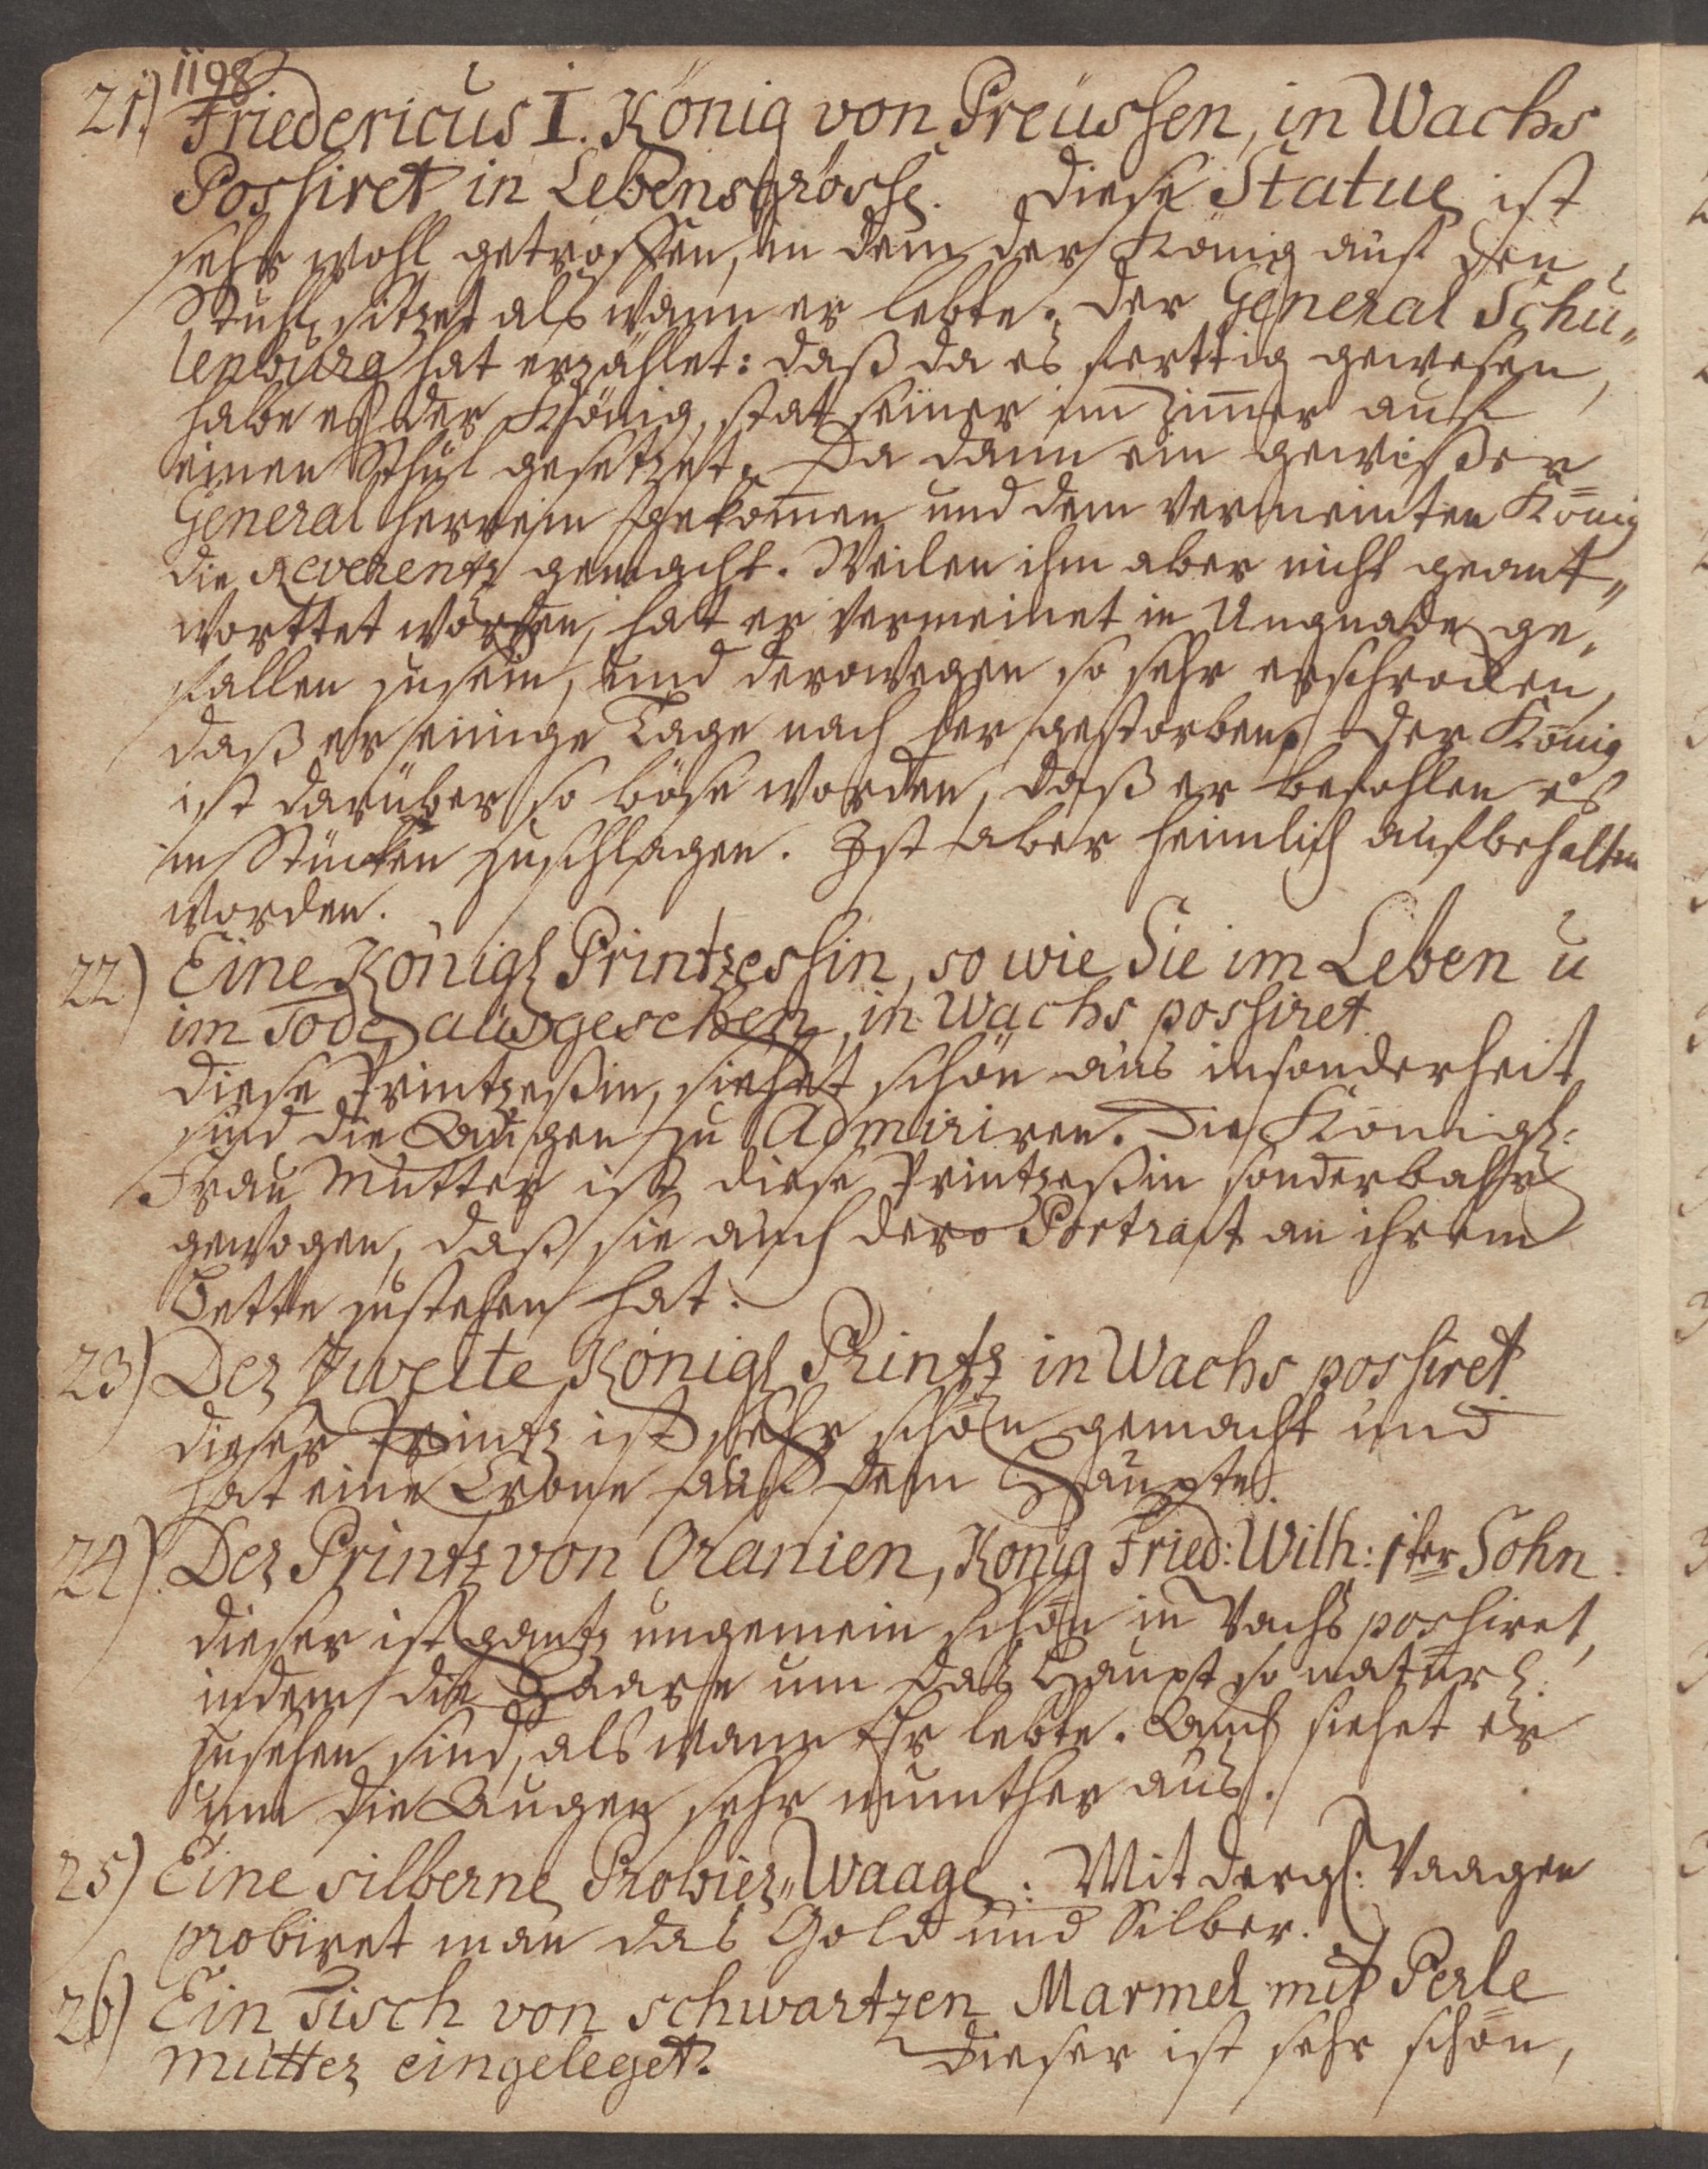 1198
21.) Friedericus I. König von Preüssen, in Wachs
Possiret in Lebensgrösse. Diese Statue ist
sehr wohl getroffen, in dem der König auf den
Stuhl sitzet als wann er lebte. Der General Schu„
lenburg hat erzählet: daß da es ferttig gewesen,
habe es der König, stat seiner im Zimer auf
einen Sthul gesetzet. Da dann ein gewißer
General herrein gekomen und dem vermeinten König
die Reverentz gemacht. Weilen ihm aber nicht geant„
worttet worden, hat er vermeinet in Ungnade ge„
fallen zusein, und derowegen so sehr erschrocken,
daß er einige Tage nach her gestorben. Der König
ist darüber so böse worden, daß er befohlen es
in Stücken zuschlagen. Ist aber heimlich aufbehalten
worden.
22) Eine Königl Printzessin, so wie Sie im Leben u
im Tode ausgesehen, in Wachs possiret
Diese Printzeßin, siehet schön aus insonderheit
sind die Augen zu Admiriren. Die Königl:
Frau Mutter ist diese Printzeßin sonderbahr
gewogen, daß sie auch dero Portrait an ihrem
Bette zustehen hat.
23) Der Zweite Königl Printz in Wachs possiret.
Dieser Printz ist sehr schön gemacht und
hat eine Crone auf dem Haupte.
24) Der Printz von Oranien, König Fried: Wilh: 1ter Sohn.
Dieser ist gantz ungemein schön in Wachs possiret,
indem die Haare um das Haupt so natürl:
zusehen sind, als wann Er lebte. Auch siehet er
um die Augen sehr munther aus.
25) Eine silberne Probier„Waage. Mit dergl: Waagen
probiret man das Gold und Silber.
26) Ein Tisch von schwartzen Marmel mit Perle
Mutter eingeleget. Dieser ist sehr schön,